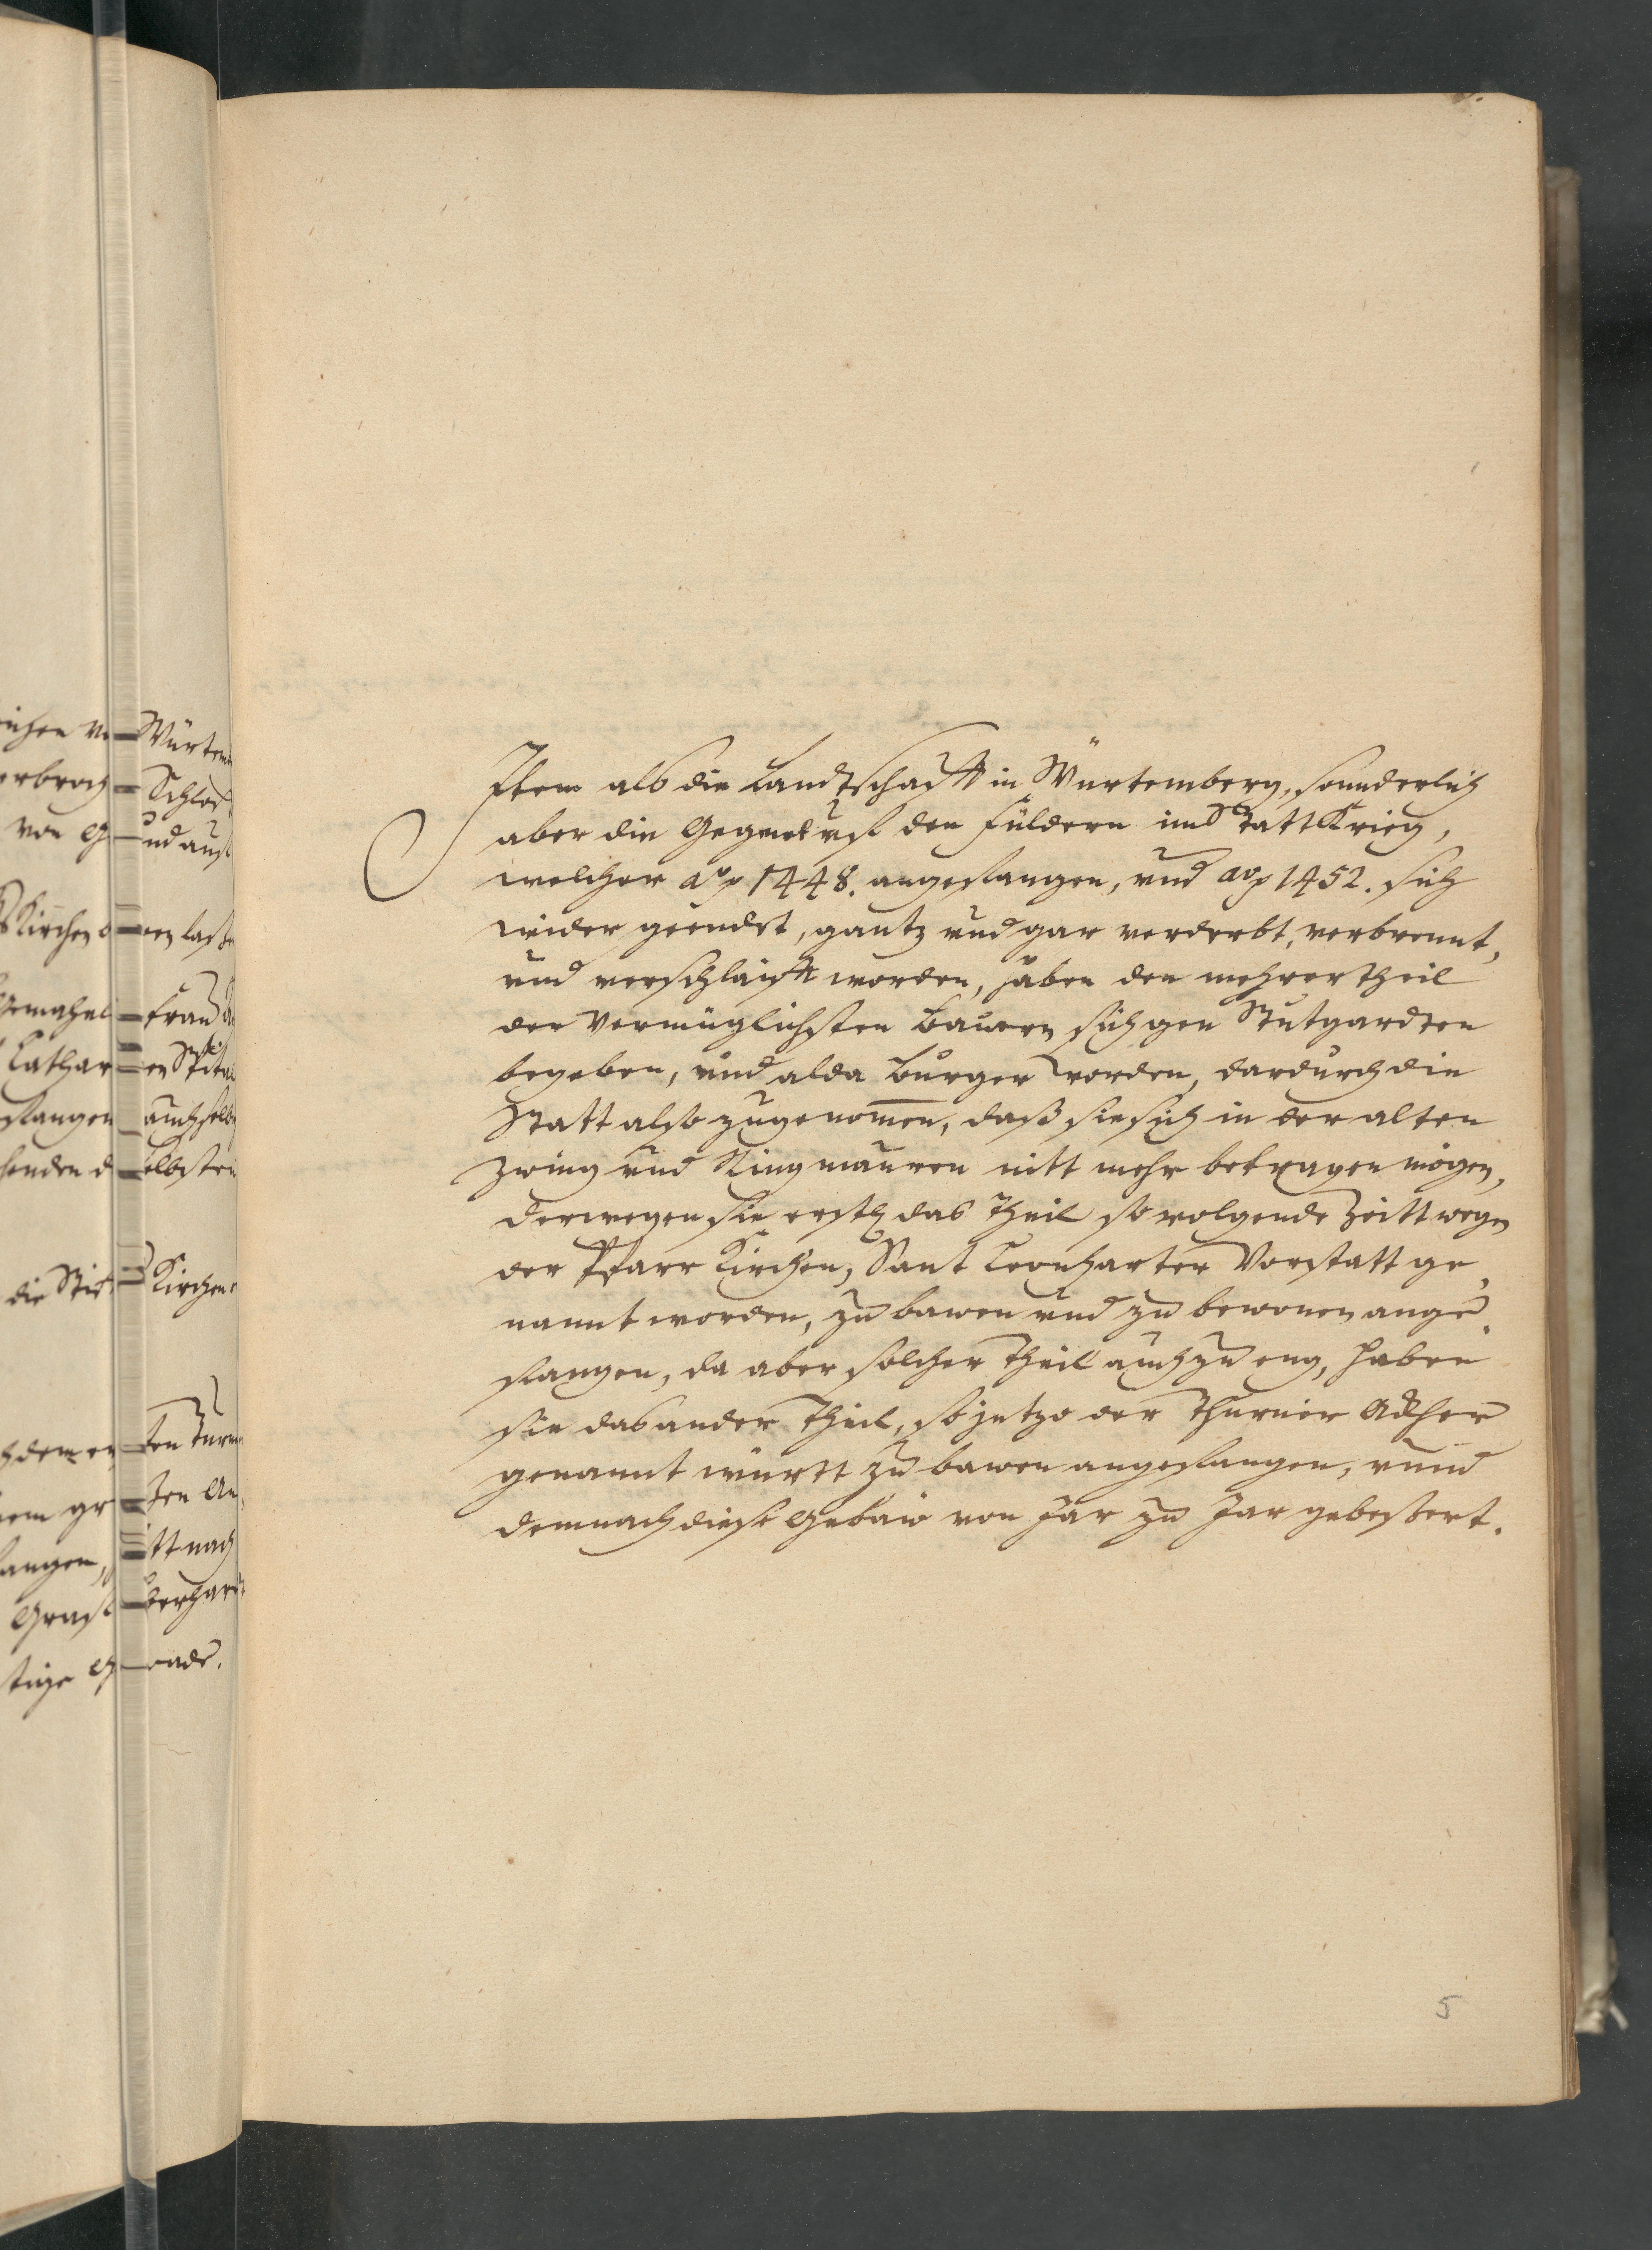 Würtem
Schloß
und auß
en laße
Frau
en Spital
auch selb
elbsten
die Stifft Kirchen
Item alß die Landtschafft in Würtemberg, sonnderlich
aber die Gegnet uff den Fildern im Statt Krieg,
welcher aō 1448. angefangen, und aō 1452. sich
wider geendet, gantz und gar verderbt, verbrennt,
und verschlaifft worden, haben den mehrer theil
der vermüglichsten Bauern sich gen Stutgardten
begeben, und alda Burger worden, dardurch die
Statt also zugenom̄en, daß sie sich in der alten
Zwing und Ringmauren nitt mehr betragen mögen,
derwegen sie erstl. das Theil so volgende Zeitt wegen
der Pfarr Kirchen, Sant Leonharter Vorstatt ge,
nannt worden, zu bawen und zu bewonen ange,
fangen, da aber solcher Theil auch zu eng, haben
sie das ander Theil, so jetzo der Thurnier Ackher
genannt württ zu bawen angefangen, unnd
demnach diese Gebäw von Jar zu Jar gebeßert.
5